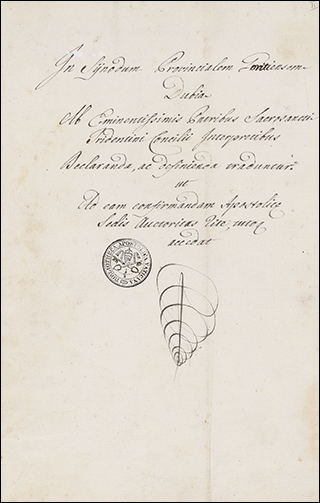 In Synodum Provincialem
Dubia
Ab Eminentissimis Patribus Sacrosancti
Tridentini Concilii Interpretibus
Declaranda, ac definienda traduntur
ut
Ad eam confirmandam Apostolicę
Sedis Auctoritas rite, tutoq
accedat
BIBLIOTHECA APOSTOLICA VATICANA